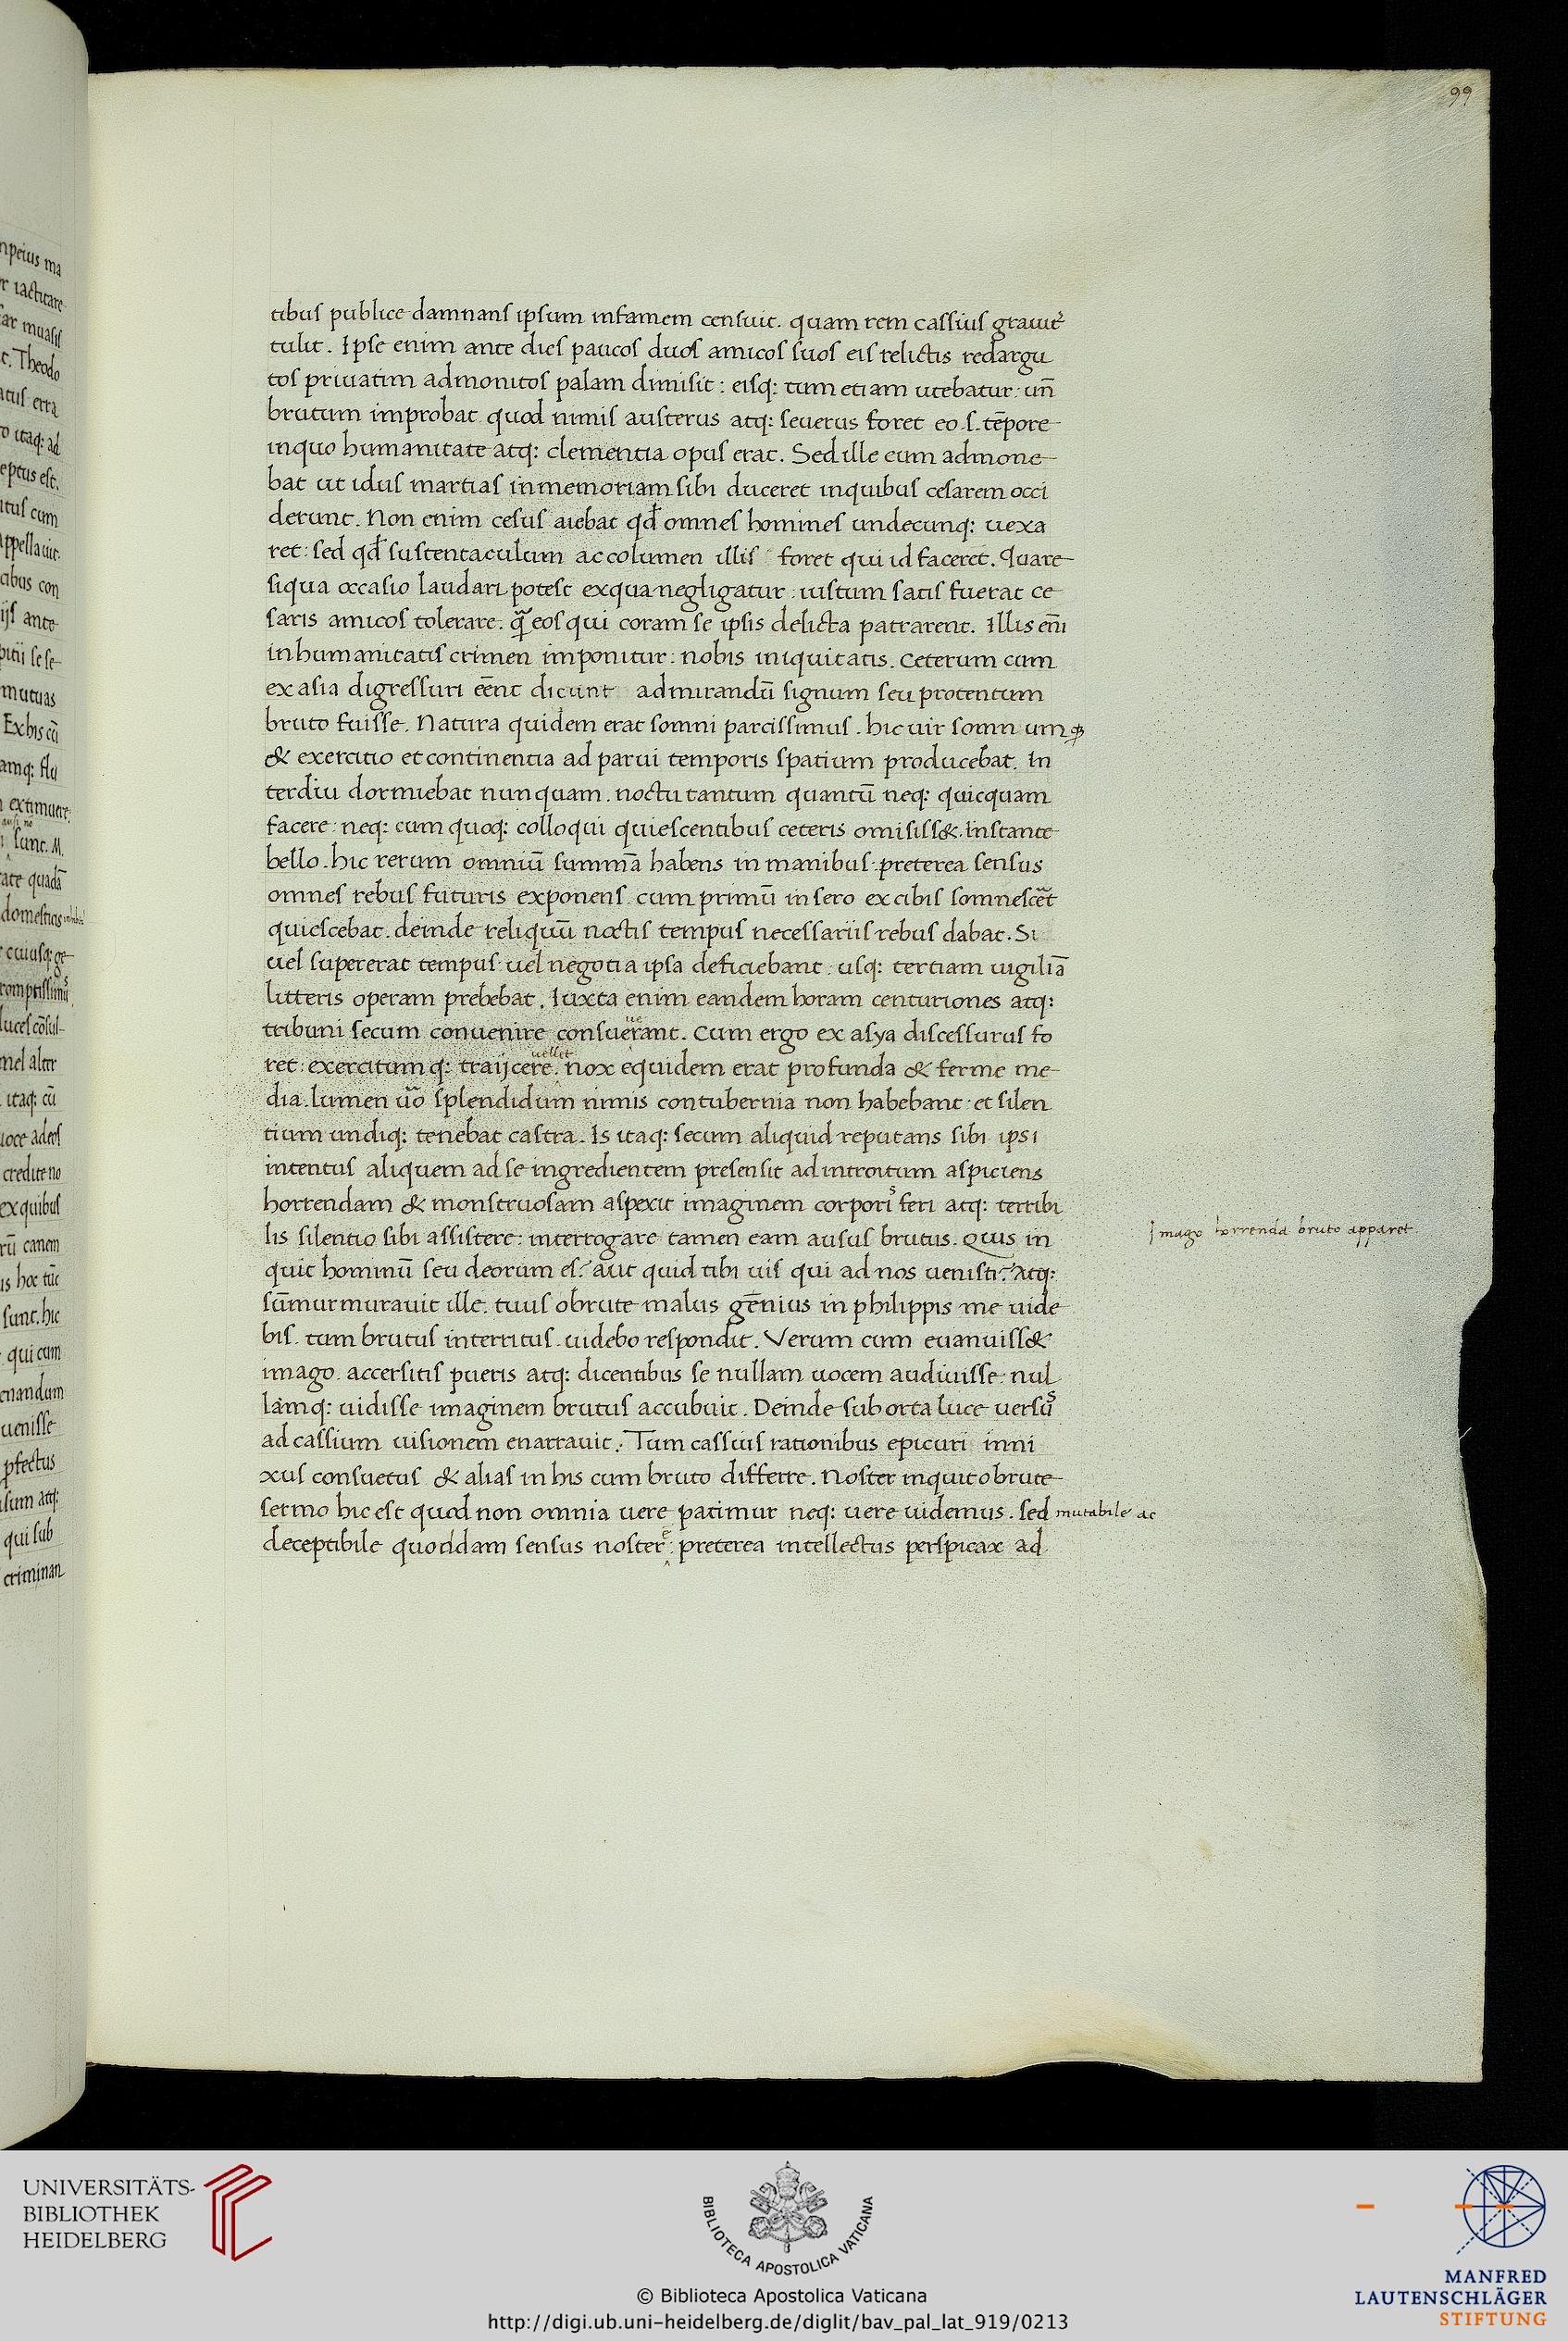 99
tibus publice damnans ipsum infamem censuit. quam rem cassius grauiť
tulit. Ipse enim ante dies paucos duos amicos suos eis relictis redargu
tos priuatim admonitos palam dimisit: eisq: tum etiam utebatur. uñ
brutum improbat quod nimis austerus atq: seuerus foret eo .s. tēpore
inquo humanitate atq: clementia opus erat. Sed ille eum admone
bat ut idus martias in memoriam sibi duceret inquibus cesarem occi
derunt. Non enim cesus aiebat qđ omnes homines undecunq: uexa
ret: sed qđ sustentaculum ac columen illis foret qui id faceret. Quare
siqua occasio laudari potest exqua negligatur: iustum satis fuerat ce
saris amicos tolerare. q̄ eos qui coram se ipsis delicta patrarent. Illis eñi
inhumanitatis crimen imponitur: nobis iniquitatis. Ceterum cum
ex asia digressuri eēnt dicunt admirandū signum seu protentum
bruto fuisse. Natura quidem erat somni parcissimus. hic uir somn um
& exercitio et continentia ad parui temporis spatium producebat. In
terdiu dormiebat nunquam. noctu tantum quantū neq: quicquam
facere: neq: cum quoq: colloqui quiescentibus ceteris omisiss&. Instante
bello. hic rerum omniū summā habens in manibus. preterea sensus
omnes rebus futuris exponens. cum primū in sero ex cibis somnescēt
quiescebat. deinde reliquū noctis tempus necessariis rebus dabat. Si
uel supererat tempus. uel negotia ipsa deficiebant. usq: tertiam uigiliā
litteris operam prebebat. Iuxta enim eandem horam centuriones atq:
tribuni secum conuenire consuerant. Cum ergo ex asya discessurus fo
ue
ret: exercitumq: traijcere. nox equidem erat profunda & ferme me
uellet
dia. lumen ūo splendidum nimis contubernia non habebant. et silen
tium undiq: tenebat castra. Is itaq: secum aliquid reputans sibi ipsi
intentus aliquem ad se ingredientem presensit ad introitum aspiciens
horrendam & monstruosam aspexit imaginem corporis feri atq: terribi
lis silentio sibi assistere: interrogare tamen eam ausus brutus. Quis in
Imago horrenda bruto apparet
quit hominū seu deorum es? aut quid tibi uis qui ad nos uenisti? Atq:
sūmurmurauit ille. tuus obrute malus genius in philippis me uide
bis. tum brutus interritus. uidebo respondit. Verum cum euanuiss&
imago. accersitis pueris atq: dicentibus se nullam uocem audiuisse. nul
lamq: uidisse imaginem brutus accubuit. Deinde sub orta luce uersus
ad cassium uisionem enarrauit. Tum cassius rationibus epicuri inni
xus consuetus & alias in his cum bruto differre. Noster inquit obrute
sermo hic est quod non omnia uere patimur neq: uere uidemus. sed mutabile ac
deceptibile quoddam sensus noster ē: preterea intellectus perspicax ad
UNIVERSITÄTS-
BIBLIOTHEK
HEIDELBERG
BIBLIOTECA APOSTOLICA VATICANA
© Biblioteca Apostolica Vaticana
http://digi.ub.uni-heidelberg.de/diglit/bav_pal_lat_919/0213
MANFRED
LAUTENSCHLÄGER
STIFTUNG